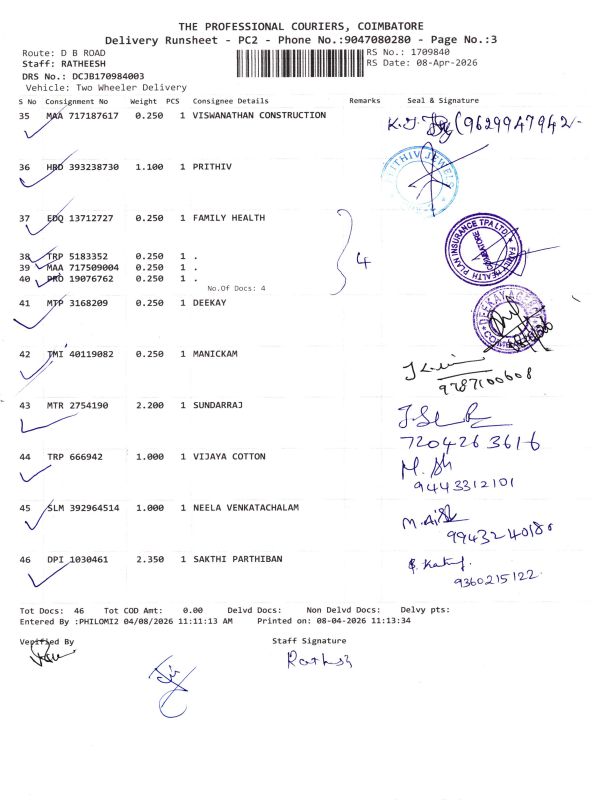 THE PROFESSIONAL COURIERS, COIMBATORE
Delivery Runsheet - PC2 - Phone No.:9047080280 - Page No.:3
Route: D B ROAD
RS No.: 1709840
Staff: RATHEESH
RS Date: 08-Apr-2026
DRS No.: DCJB170984003
Vehicle: Two Wheeler Delivery
S No Consignment No Weight PCS Consignee Details Remarks Seal & Signature
35 MAA 717187617 0.250 1 VISWANATHAN CONSTRUCTION
(9629947942
36 HRD 393238730 1.100 1 PRITHIV
37 EDQ 13712727 0.250 1 FAMILY HEALTH
FAMILY HEALTH PLAN INSURANCE TPA LTD
COIMBATORE
38 TRP 5183352 0.250 1 .
39 MAA 717509004 0.250 1 .
4
40 PRD 19076762 0.250 1 .
No.Of Docs: 4
41 MTP 3168209 0.250 1 DEEKAY
42 TMI 40119082 0.250 1 MANICKAM
9787100608
43 MTR 2754190 2.200 1 SUNDARRAJ
7204263616
44 TRP 666942 1.000 1 VIJAYA COTTON
9443312101
45 SLM 392964514 1.000 1 NEELA VENKATACHALAM
9943240180
46 DPI 1030461 2.350 1 SAKTHI PARTHIBAN
9360215122
Tot Docs: 46 Tot COD Amt: 0.00 Delvd Docs: Non Delvd Docs: Delvy pts:
Entered By :PHILOMI2 04/08/2026 11:11:13 AM Printed on: 08-04-2026 11:13:34
Verified By Staff Signature